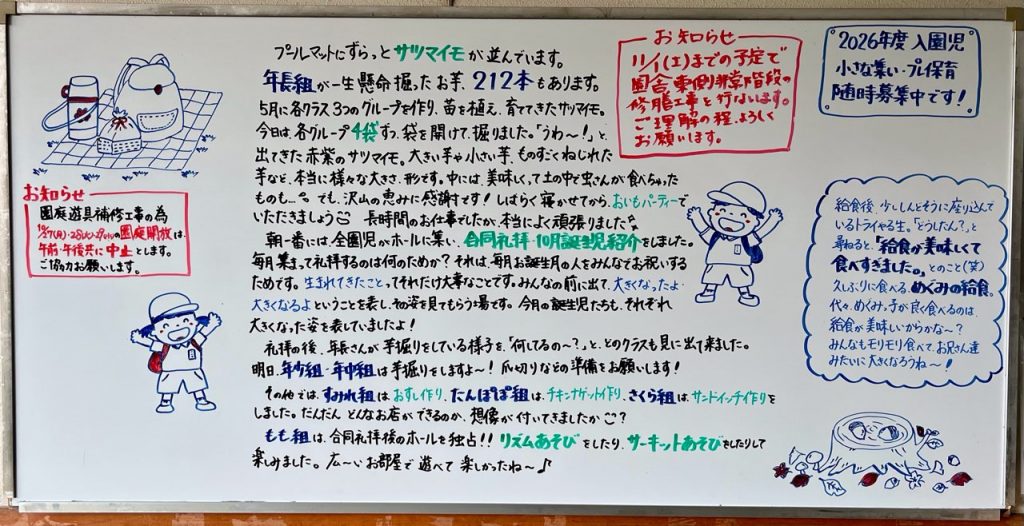 プールマットにずらっとサツマイモが並んでいます。
年長組が一生懸命掘ったお芋、212本もあります。
5月に各クラス3つのグループを作り、苗を植え、育ててきたサツマイモ。
今日は、各グループ4袋ずつ、袋を開けて、掘りました。「うわ〜!」と、
出てきた赤紫のサツマイモ。大きい芋や小さい芋、ものすごくねじれた
芋など、本当に様々な大きさ、形です。中には、美味しくって土の中で虫さんが食べちゃった
ものも…。でも、沢山の恵みに感謝です!しばらく寝かせてから、おいもパーティーで
いただきましょう 長時間のお仕事でしたが、本当によく頑張りました
朝一番には、全園児がホールに集い、合同礼拝・10月誕生児紹介をしました。
毎月集まって礼拝するのは何のためか?それは、毎月お誕生月の人をみんなでお祝いする
ためです。生まれてきたことってそれだけ大事なことです。みんなの前に出て、大きくなったよ・
大きくなるよということを表し、その姿を見てもらう場です。今月の誕生児たちも、それぞれ
大きくなった姿を表していましたよ!
礼拝の後、年長さんが芋掘りをしている様子を、「何してるの〜?」と、どのクラスも見に出て来ました。
明日、年少組・年中組は芋掘りをしますよ〜!爪切りなどの準備をお願いします!
その他では、すみれ組は、おすし作り、たんぽぽ組は、チキンナゲット作り、さくら組は、サンドイッチ作りを
しました。だんだん どんなお店ができるのか、想像が付いてきましたか?
もも組は、合同礼拝後のホールを独占!!リズムあそびをしたり、サーキットあそびをしたりして
楽しみました。広〜いお部屋で遊べて楽しかったね〜♪
お知らせ
11/1(土)までの予定で
園舎東側非常階段の
修膳工事を行ないます。
ご理解の程、よろしく
お願いします。
2026年度 入園児
小さな集い・プレ保育
随時募集中です!
お知らせ
園庭遊具補修工事の為
10/27(月)・28(火)・29(水)の園庭開放は、
午前・午後共に中止とします。
ご協力お願いします。
給食後、少ししんどそうに座り込んで
いるトライやる生。「どうしたん?」と
尋ねると、「給食が美味しくて
食べすぎました。」とのこと(笑)
久しぶりに食べる、めぐみの給食。
代々、めぐみっ子が良く食べるのは、
給食が美味しいからかな〜?
みんなもモリモリ食べて、お兄さん達
みたいに大きくなろうね〜!